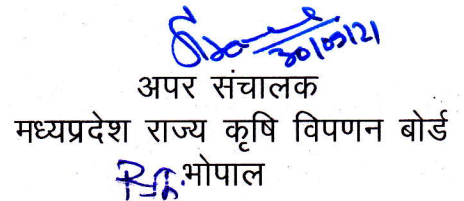 30/09/21
अपर संचालक
मध्यप्रदेश राज्य कृषि विपणन बोर्ड
भोपाल